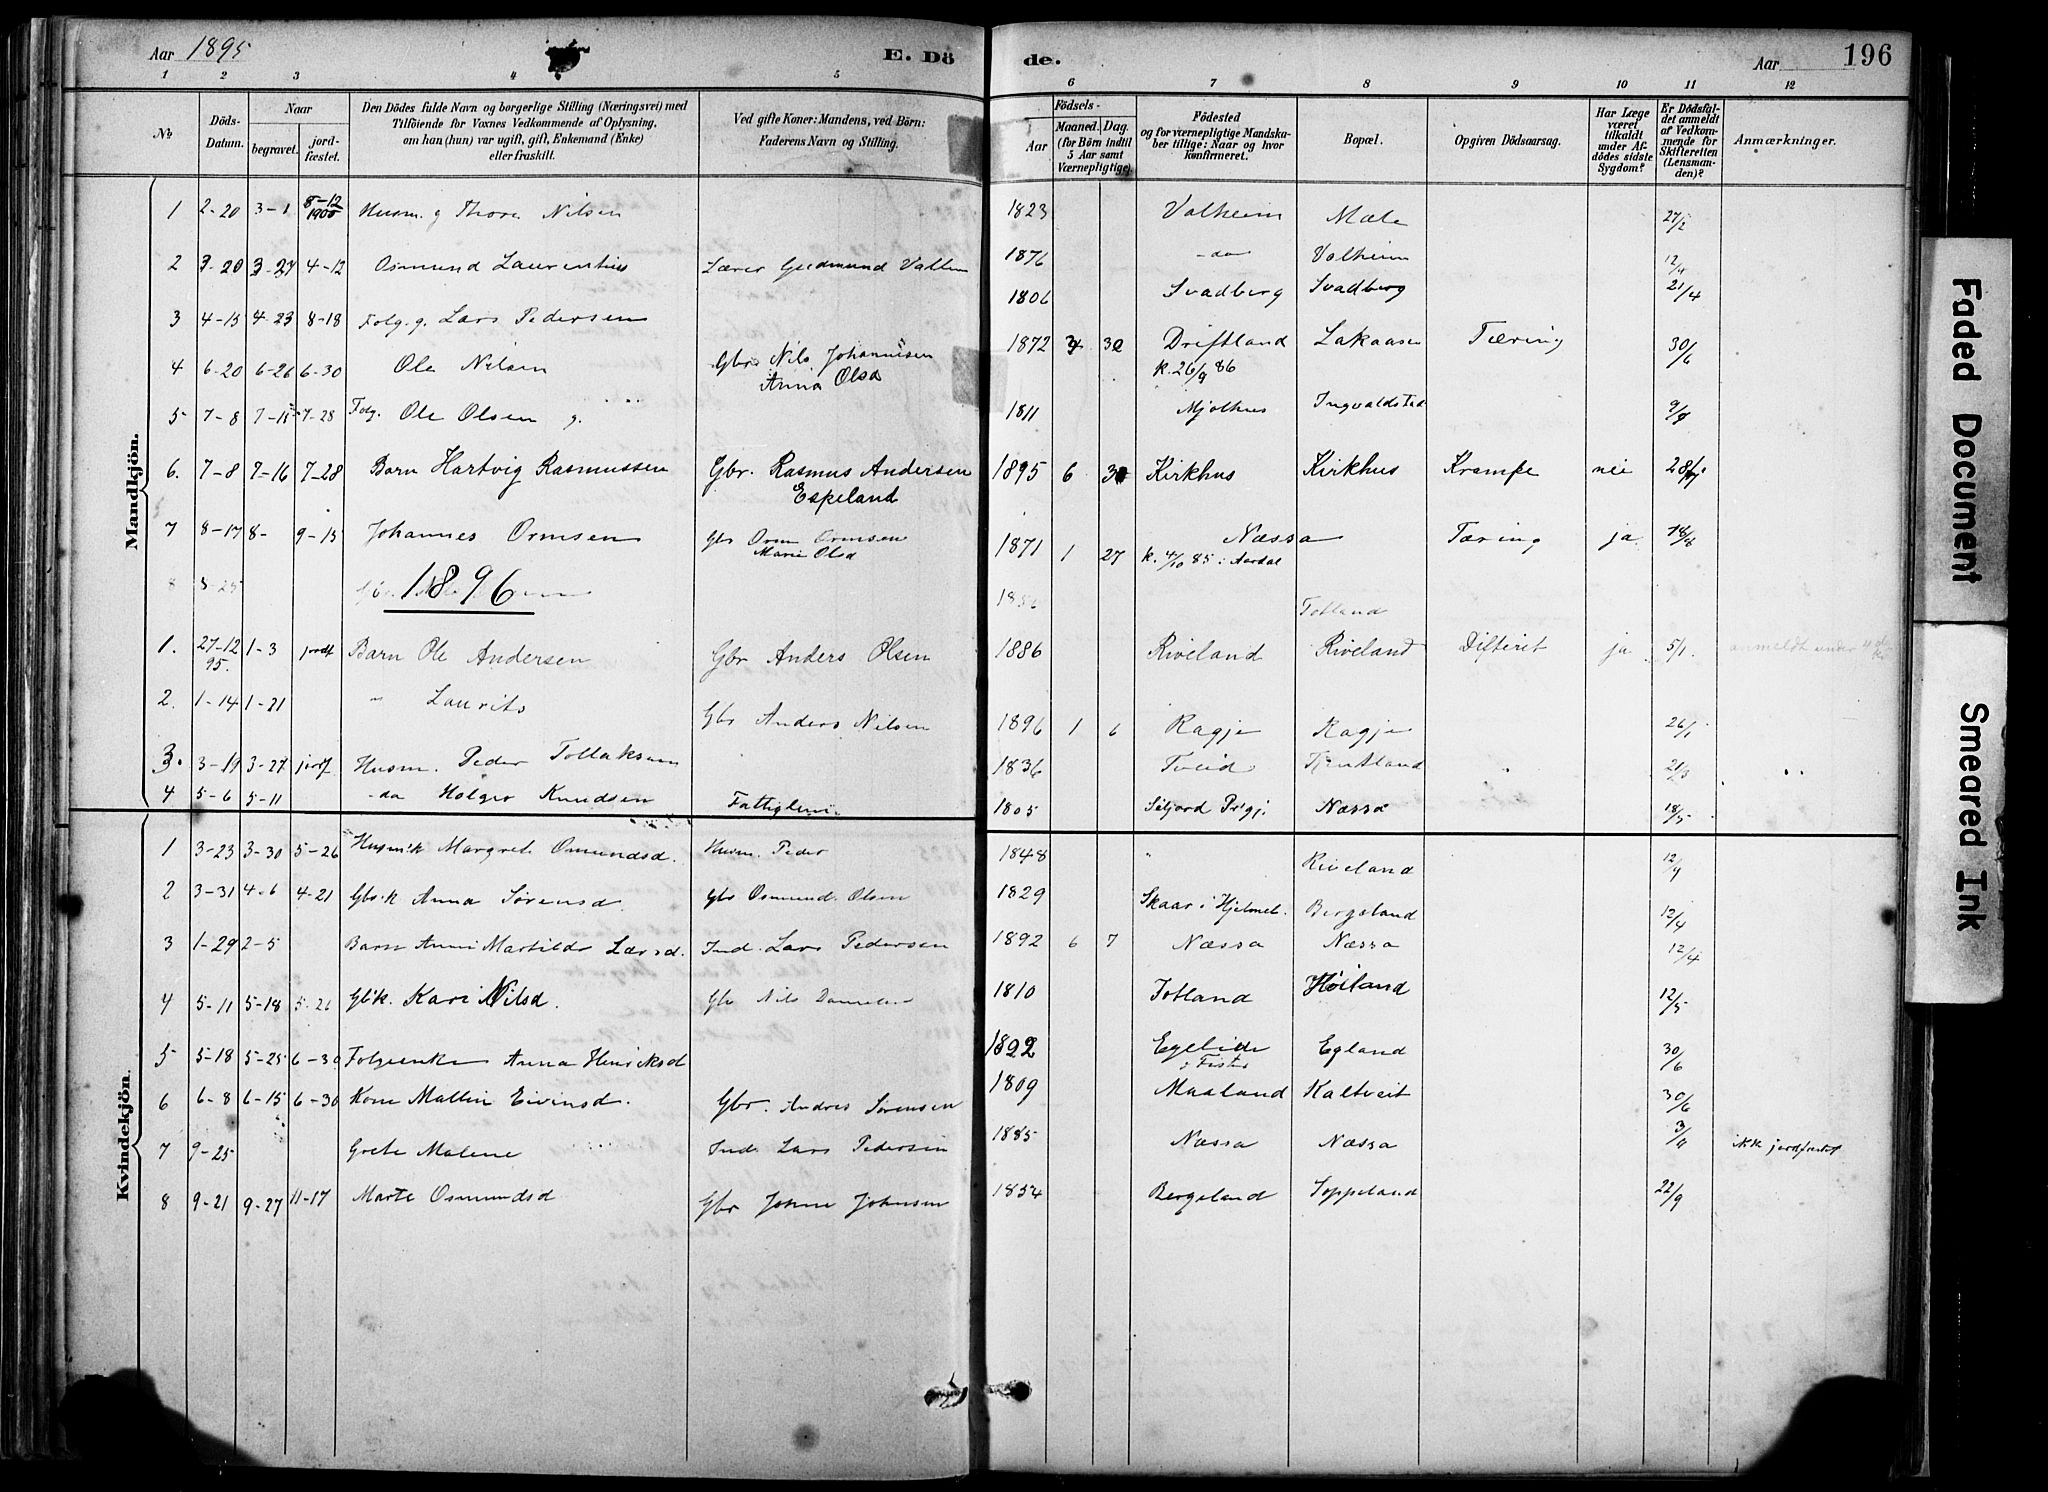 Aar 1895
E. Dö
de.
Aar
196
1 2 3 4 5 6 7 8 9 10 11 12
No
Döds-Datum.
Naar
begravet.
jord-fæstet.
Den Dödes fulde Navn og borgerlige Stilling (Næringsvei) med
Tilföiende for Voxnes Vedkommende af Oplysning,
om han (hun) var ugift, gift, Enkemand (Enke)
eller fraskilt.
Ved gifte Koner: Mandens, ved Börn:
Faderens Navn og Stilling.
Födsels-
Aar
Maaned. Dag.
(for Börn indtil
5 Aar samt
Værnepligtige).
Födested
og for værnepligtige Mandska-
ber tillige: Naar og hvor
konfirmeret.
Bopæl.
Opgiven Dödsaarsag.
Har Læge
været
tilkaldt
under Af-
dödes sidste
Sygdom?
Er Dödsfal-
det anmeldt
af Vedkom-
mende for
Skifteretten
(Lensman-
den)?
Anmærkninger.
Mandkjön.
1 2-20 3-1 8-12 1900 Husm. g Thore Nilsen 1823 Valheim Mæle 27/2
2 3-20 3-27 4-12 Osmund Laurentius Lærer Gudmund 1876 do Valheim 12/4
3 4-15 4-23 8-18 Folg. g. Lars Pedersen 1806 Svadberg Svadberg 21/4
4 6-20 6-26 6-30 Ole Nilsen Gbr Nils Johannesen 1872 30 Driftland Lakaasen Tæring 30/6
Anna Olsd k. 26/9 86
5 7-8 7-15 7-28 Folg. Ole Olsen g. 1811 Mjølhus Ingvaldstad
6. 7-8 7-16 7-28 Barn Hartvig Rasmussen Gbr. Rasmus Andersen 1895 6 30 Kirkhus Kirkhus Krampe nei
Espeland
7 8-17 8- 9-15 Johannes Ormsen Gbr Orm Ormsen 1871 1 27 Næssa Tæring ja 18/8
Marie Olsd k. 4/10 85 i Aardal
8 8-25 Totland
1896
1. 27-12 95. 1-3 jordf Barn Ole Andersen Gbr Anders Olsen 1886 Riveland Riveland Difterit ja 5/1. anmeldt under
2. 1-14 1-21 " Laurits Gbr Anders Nilsen 1896 1 6 Ragje Ragje 26/1
3. 3-19 3-27 jordf Husm. Peder Tollaksen 1836 Tveid Tjentland 21/3
4 5-6 5-11 do Holger Knudsen Fattiglem 1805 Siljord Prgj. Næssa 18/5
Kvindekjön.
1 3-23 3-30 5-26 Husm'k Margrete Osmundsd. Husm. Peder 1848 " Riveland 12/4
2 3-31 4-6 4-21 Gbr.k Anna Sörensd. Gbr Osmund Olsen 1829 Skaar i Hjelmel. Bergeland 12/4
3 1-29 2-5 Barn Anne Martilde Larsd. Ind. Lars Pedersen 1892 6 7 Næssa Næssa 12/4
4 5-11 5-18 5-26 Gb'k. Kari Nilsd. Gbr Nils 1810 Totland Høiland 12/5
5 5-18 5-25 6-30 Folgeenke Anna Henriksd 1822 Egland 30/6
Fister
6 6-8 6-15 6-30 Kone Mallin Eivinsd. Gbr. Andres Sørensen 1809 Maaland Kaltveit 30/6
7 9-25 Grete Malene Ind. Lars Pedersen 1885 Næssa Næssa ikke jordfæstet
8 9-21 9-27 11-17 Marte Osmundsd Gbr Johne Johnsen 1854 Bergeland Soppeland 22/9
Faded Document
Smeared Ink